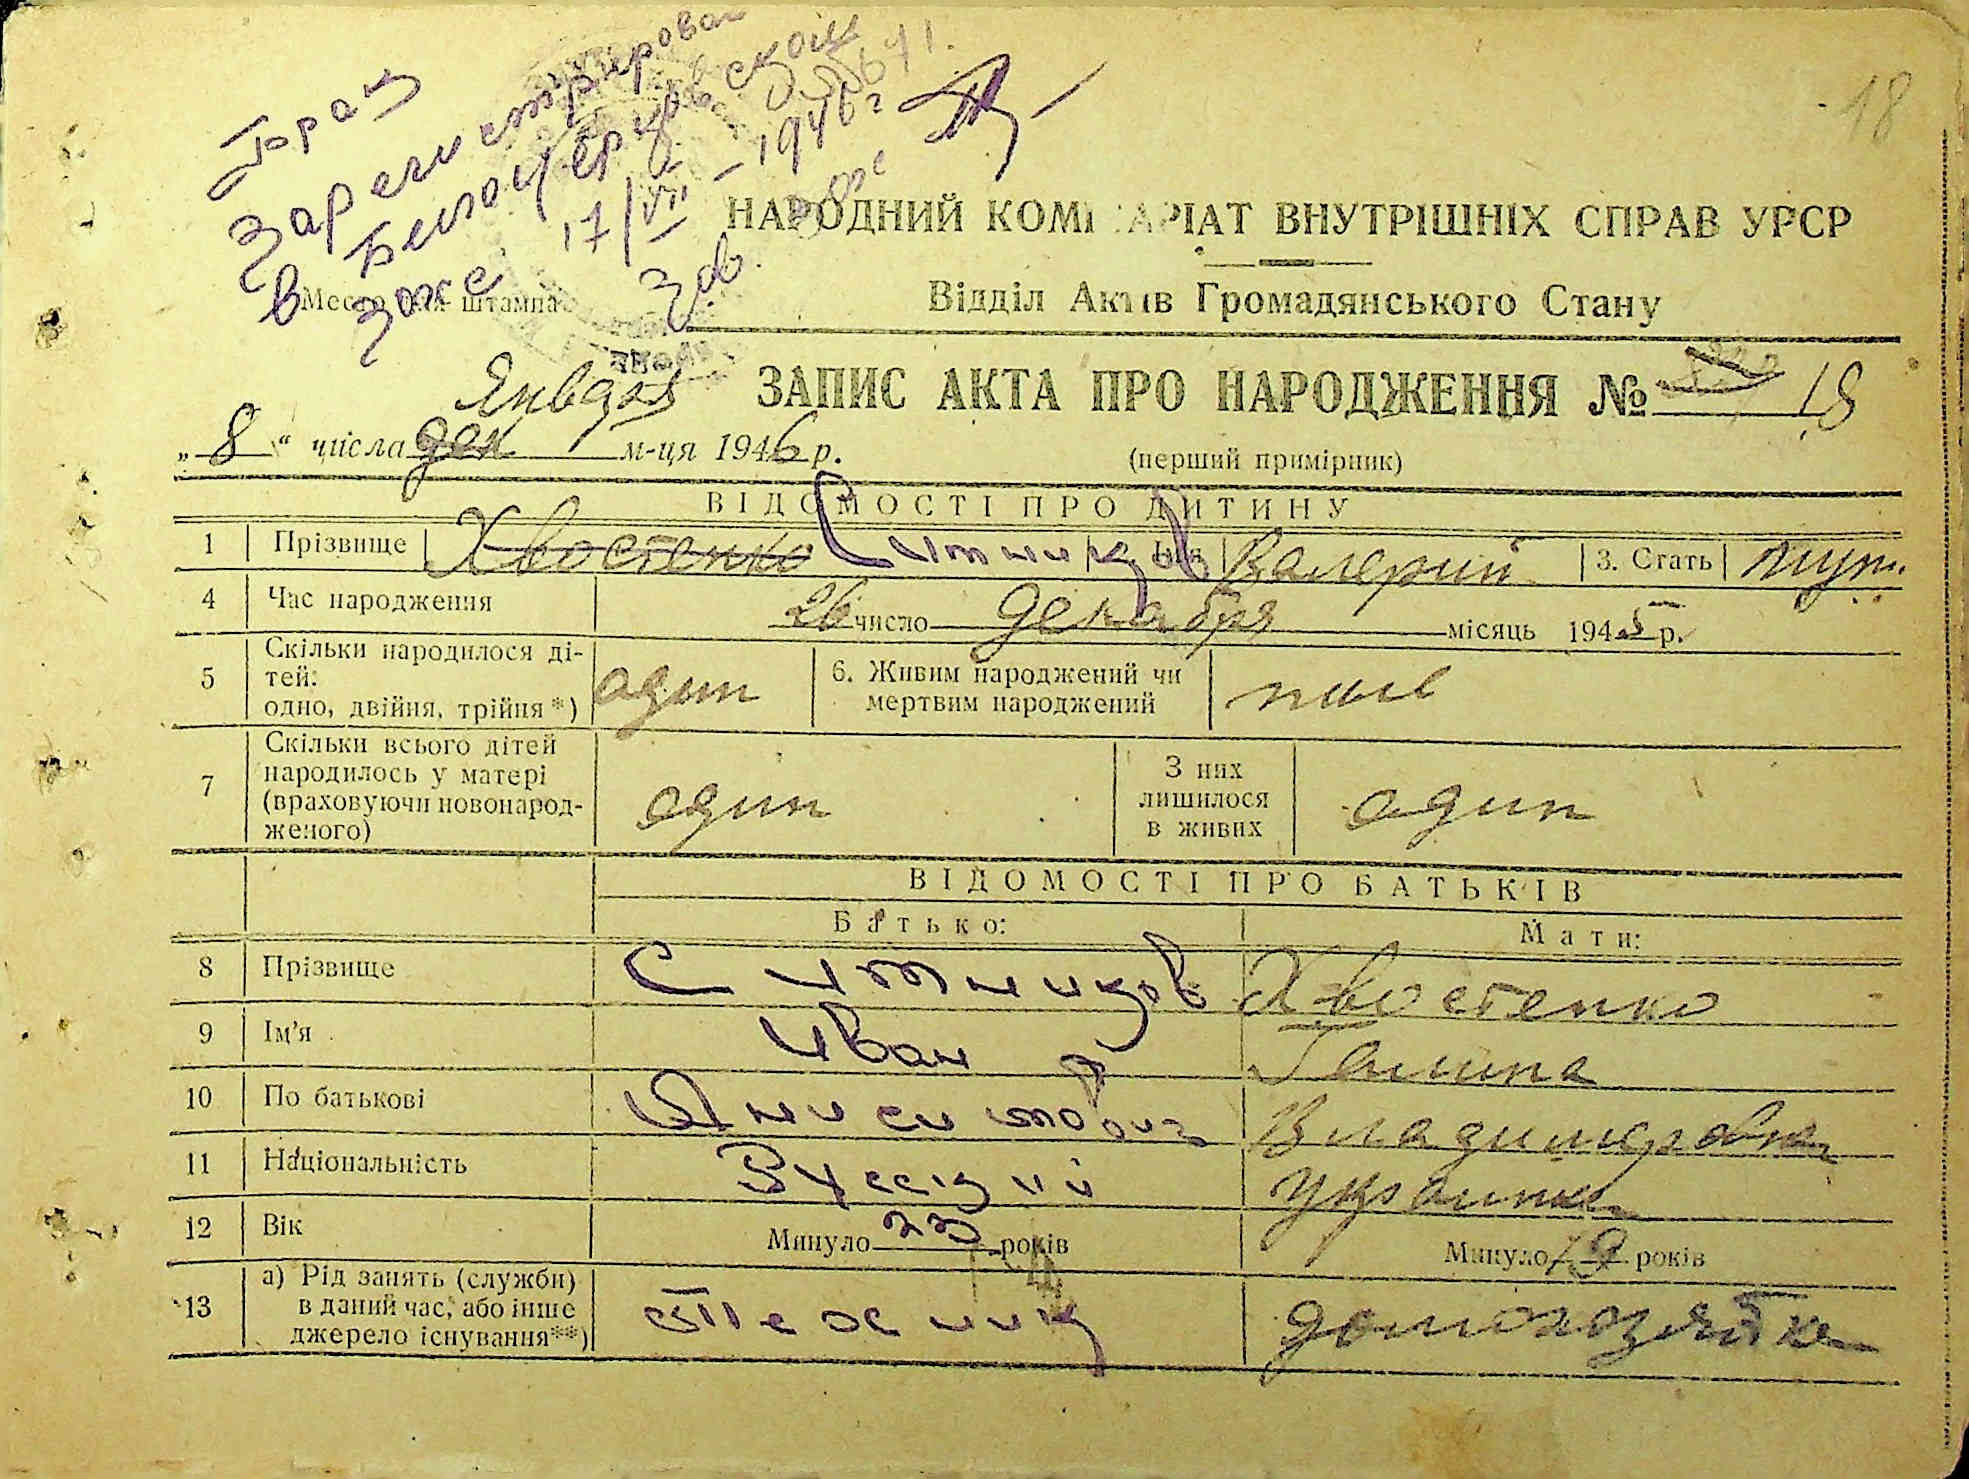 18
Брак
Зарегистрирован
в Белоцерковском
Загсе 17/VII – 1946 г
Зав.
НАРОДНИЙ КОМІ АРІАТ ВНУТРІШНІХ СПРАВ УРСР
Відділ Актів Громадянського Стану
Место для штампа
ЗАПИС АКТА ПРО НАРОДЖЕННЯ № 18
Января
„ 8 “ числа дек м-ця 1946 р.
(перший примірник)
ВІДОМОСТІ ПРО ДИТИНУ
1 Прізвище Хвостенко Ситников Ім'я Валерий 3. Стать муж.
4 Час народження 26 число декабря місяць 1945 р.
5 Скільки народилося ді-
тей:
одно, двійня, трійня *) один
6. Живим народжений чи
мертвим народжений
7 Скільки всього дітей
народилось у матері
(враховуючи новонарод-
женого) один
З них
лишилося
в живих один
ВІДОМОСТІ ПРО БАТЬКІВ
Батько: Мати:
8 Прізвище Ситников Хвостенко
9 Ім'я Иван Галина
10 По батькові Владимировна
11 Національність Русский Украинка
12 Вік Минуло 23 років Минуло 19 років
13 а) Рід занять (служби)
в даний час, або інше
джерело існування**) Техник домохозяйка